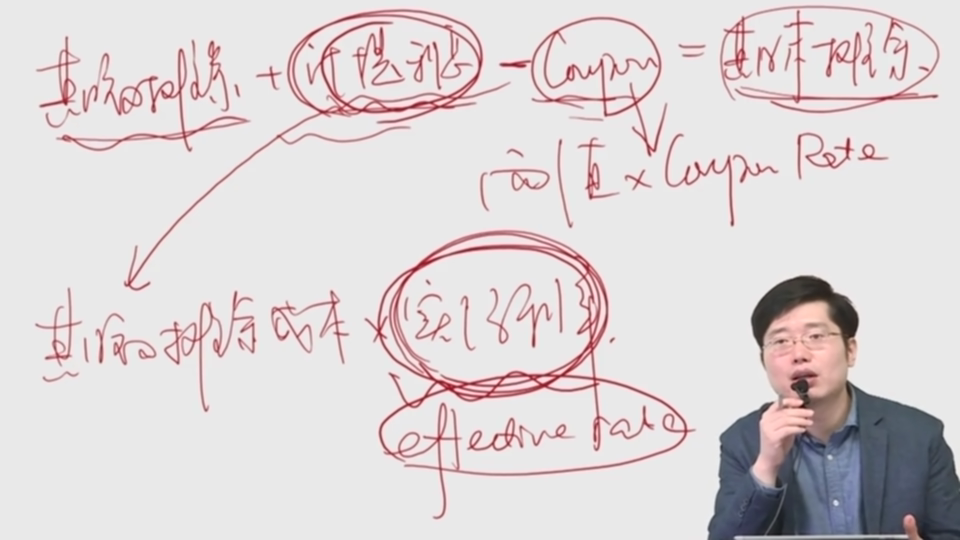 其初的摊余 + 计提利息 - Coupon = 其末摊余
面值 × Coupon Rate
其初的摊余成本 × 实际利率
effective rate